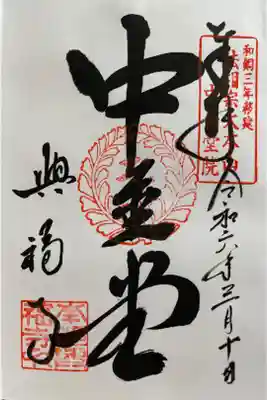 奉拝
令和六年三月十日
和銅三年移建
法相宗大本山
堂院
中金堂
興福寺